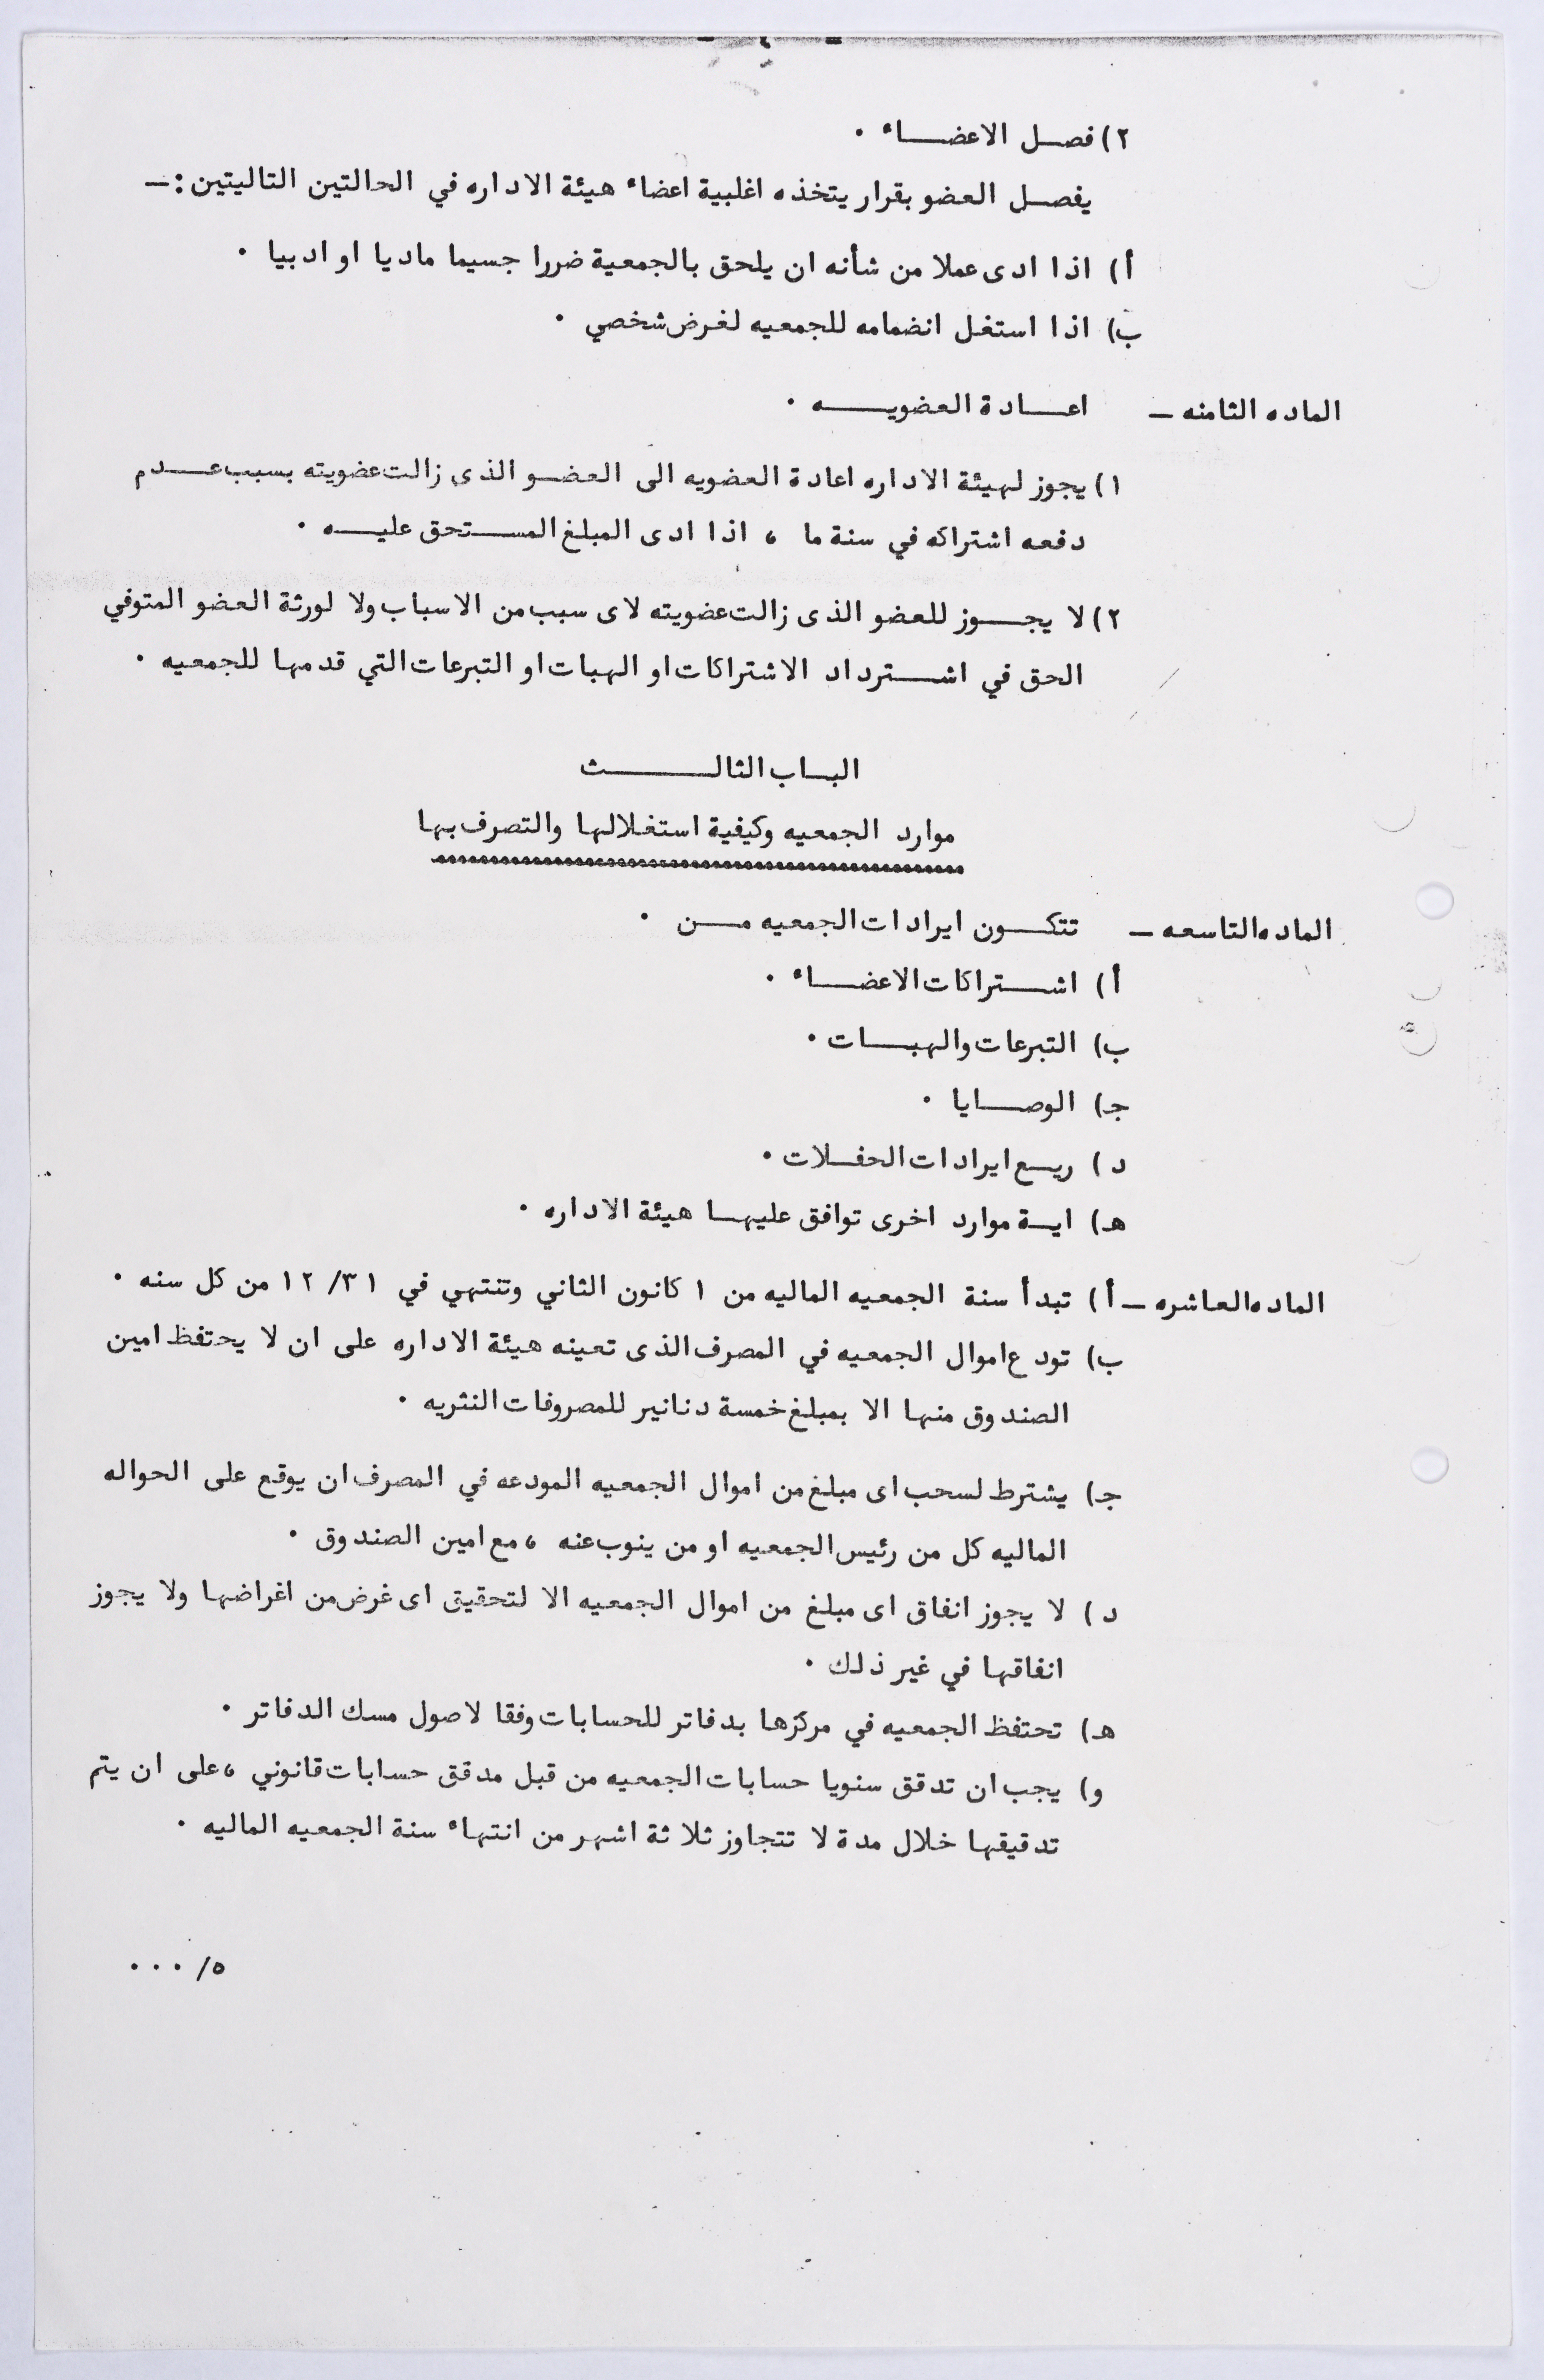 - ٤ -
٢) فصل الاعضاء ٠
يفصل العضو بقرار يتخذه اغلبية اعضاء هيئة الاداره في الحالتين التاليتين :-
أ) اذا ادى عملا من شأنه ان يلحق بالجمعية ضررا جسيما ماديا او ادبيا ٠
ب) اذا استغل انضمامه للجمعيه لغرض شخصي ٠
الماده الثامنه - اعادة العضويه ٠
١) يجوز لهيئة الاداره اعادة العضويه الى العضو الذى زالت عضويته بسبب عدم
دفعه اشتراكه في سنة ما ، اذا ادى المبلغ المستحق عليه ٠
٢) لا يجوز للعضو الذى زالت عضويته لاى سبب من الاسباب ولا لورثة العضو المتوفي
الحق في اشترداد الاشتراكات او الهبات او التبرعات التي قدمها للجمعيه ٠
الباب الثالث
موارد الجمعيه وكيفية استغلالها والتصرف بها
الماده التاسعه - تتكون ايرادات الجمعيه من ٠
أ) اشتراكات الاعضاء ٠
ب) التبرعات والهبات ٠
جـ) الوصايا ٠
د) ريع ايرادات الحفلات ٠
هـ) اية موارد اخرى توافق عليها هيئة الاداره ٠
الماده العاشره - أ) تبدأ سنة الجمعيه الماليه من ١ كانون الثاني وتنتهي في ١٢/٣١ من كل سنه ٠
ب) تودع اموال الجمعيه في المصرف الذى تعينه هيئة الاداره على ان لا يحتفظ امين
الصندوق منها الا بمبلغ خمسة دنانير للمصروفات النثريه ٠
جـ) يشترط لسحب اى مبلغ من اموال الجمعيه المودعه في المصرف ان يوقع على الحواله
الماليه كل من رئيس الجمعيه او من ينوب عنه ، مع امين الصندوق ٠
د) لا يجوز انفاق اى مبلغ من اموال الجمعيه الا لتحقيق اى غرض من اغراضها ولا يجوز
انفاقها في غير ذلك ٠
هـ) تحتفظ الجمعيه في مركزها بدفاتر للحسابات وفقا لاصول مسك الدفاتر ٠
و) يجب ان تدقق سنويا حسابات الجمعيه من قبل مدقق حسابات قانوني ، على ان يتم
تدقيقها خلال مدة لا تتجاوز ثلاثة اشهر من انتهاء سنة الجمعيه الماليه ٠
٥/ ٠٠٠